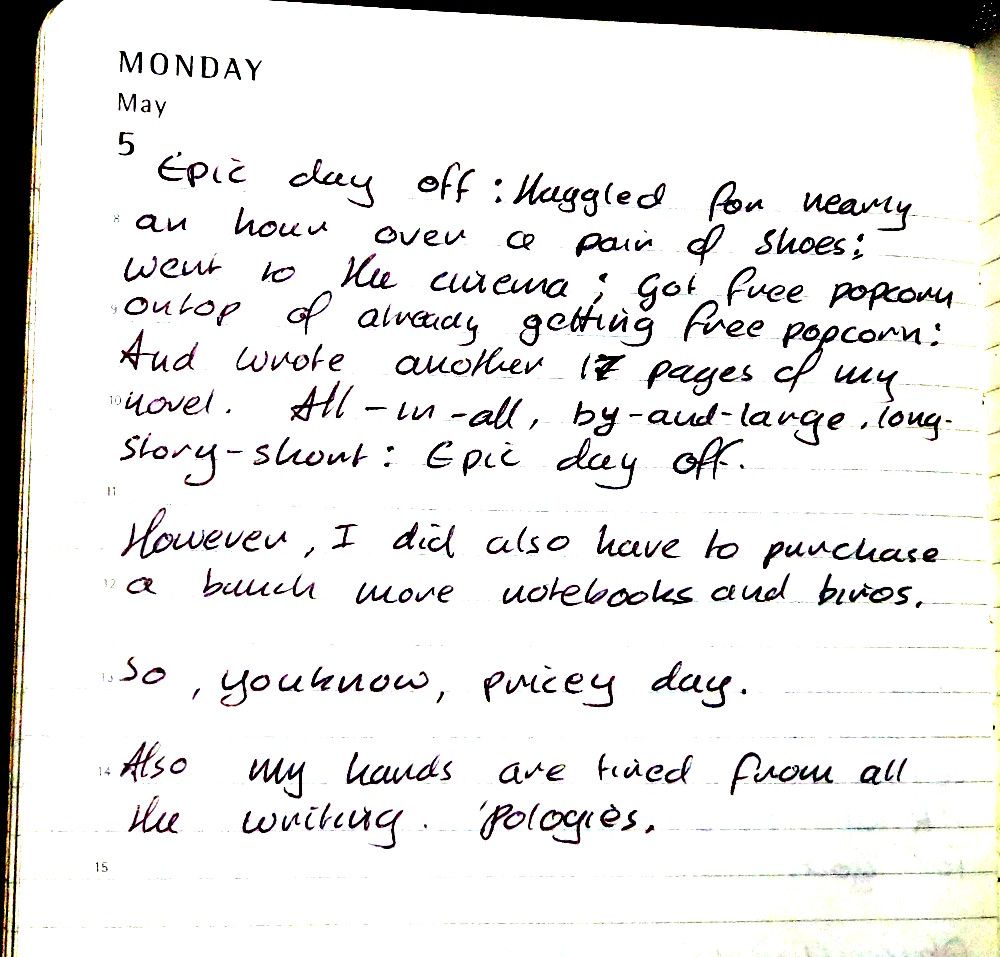 MONDAY
May
5
Epic day off: Haggled for nearly
8 an hour over a pair of shoes;
went to the cinema; Got free popcorn
9 ontop of already getting free popcorn:
And wrote another 17 pages of my
10 novel. All-in-all, by-and-large, long-
story-short: Epic day off.
11
However, I did also have to purchase
12 a bunch more notebooks and biros.
13 So, youknow, pricey day.
14 Also my hands are tired from all
the writing. 'Pologies.
15